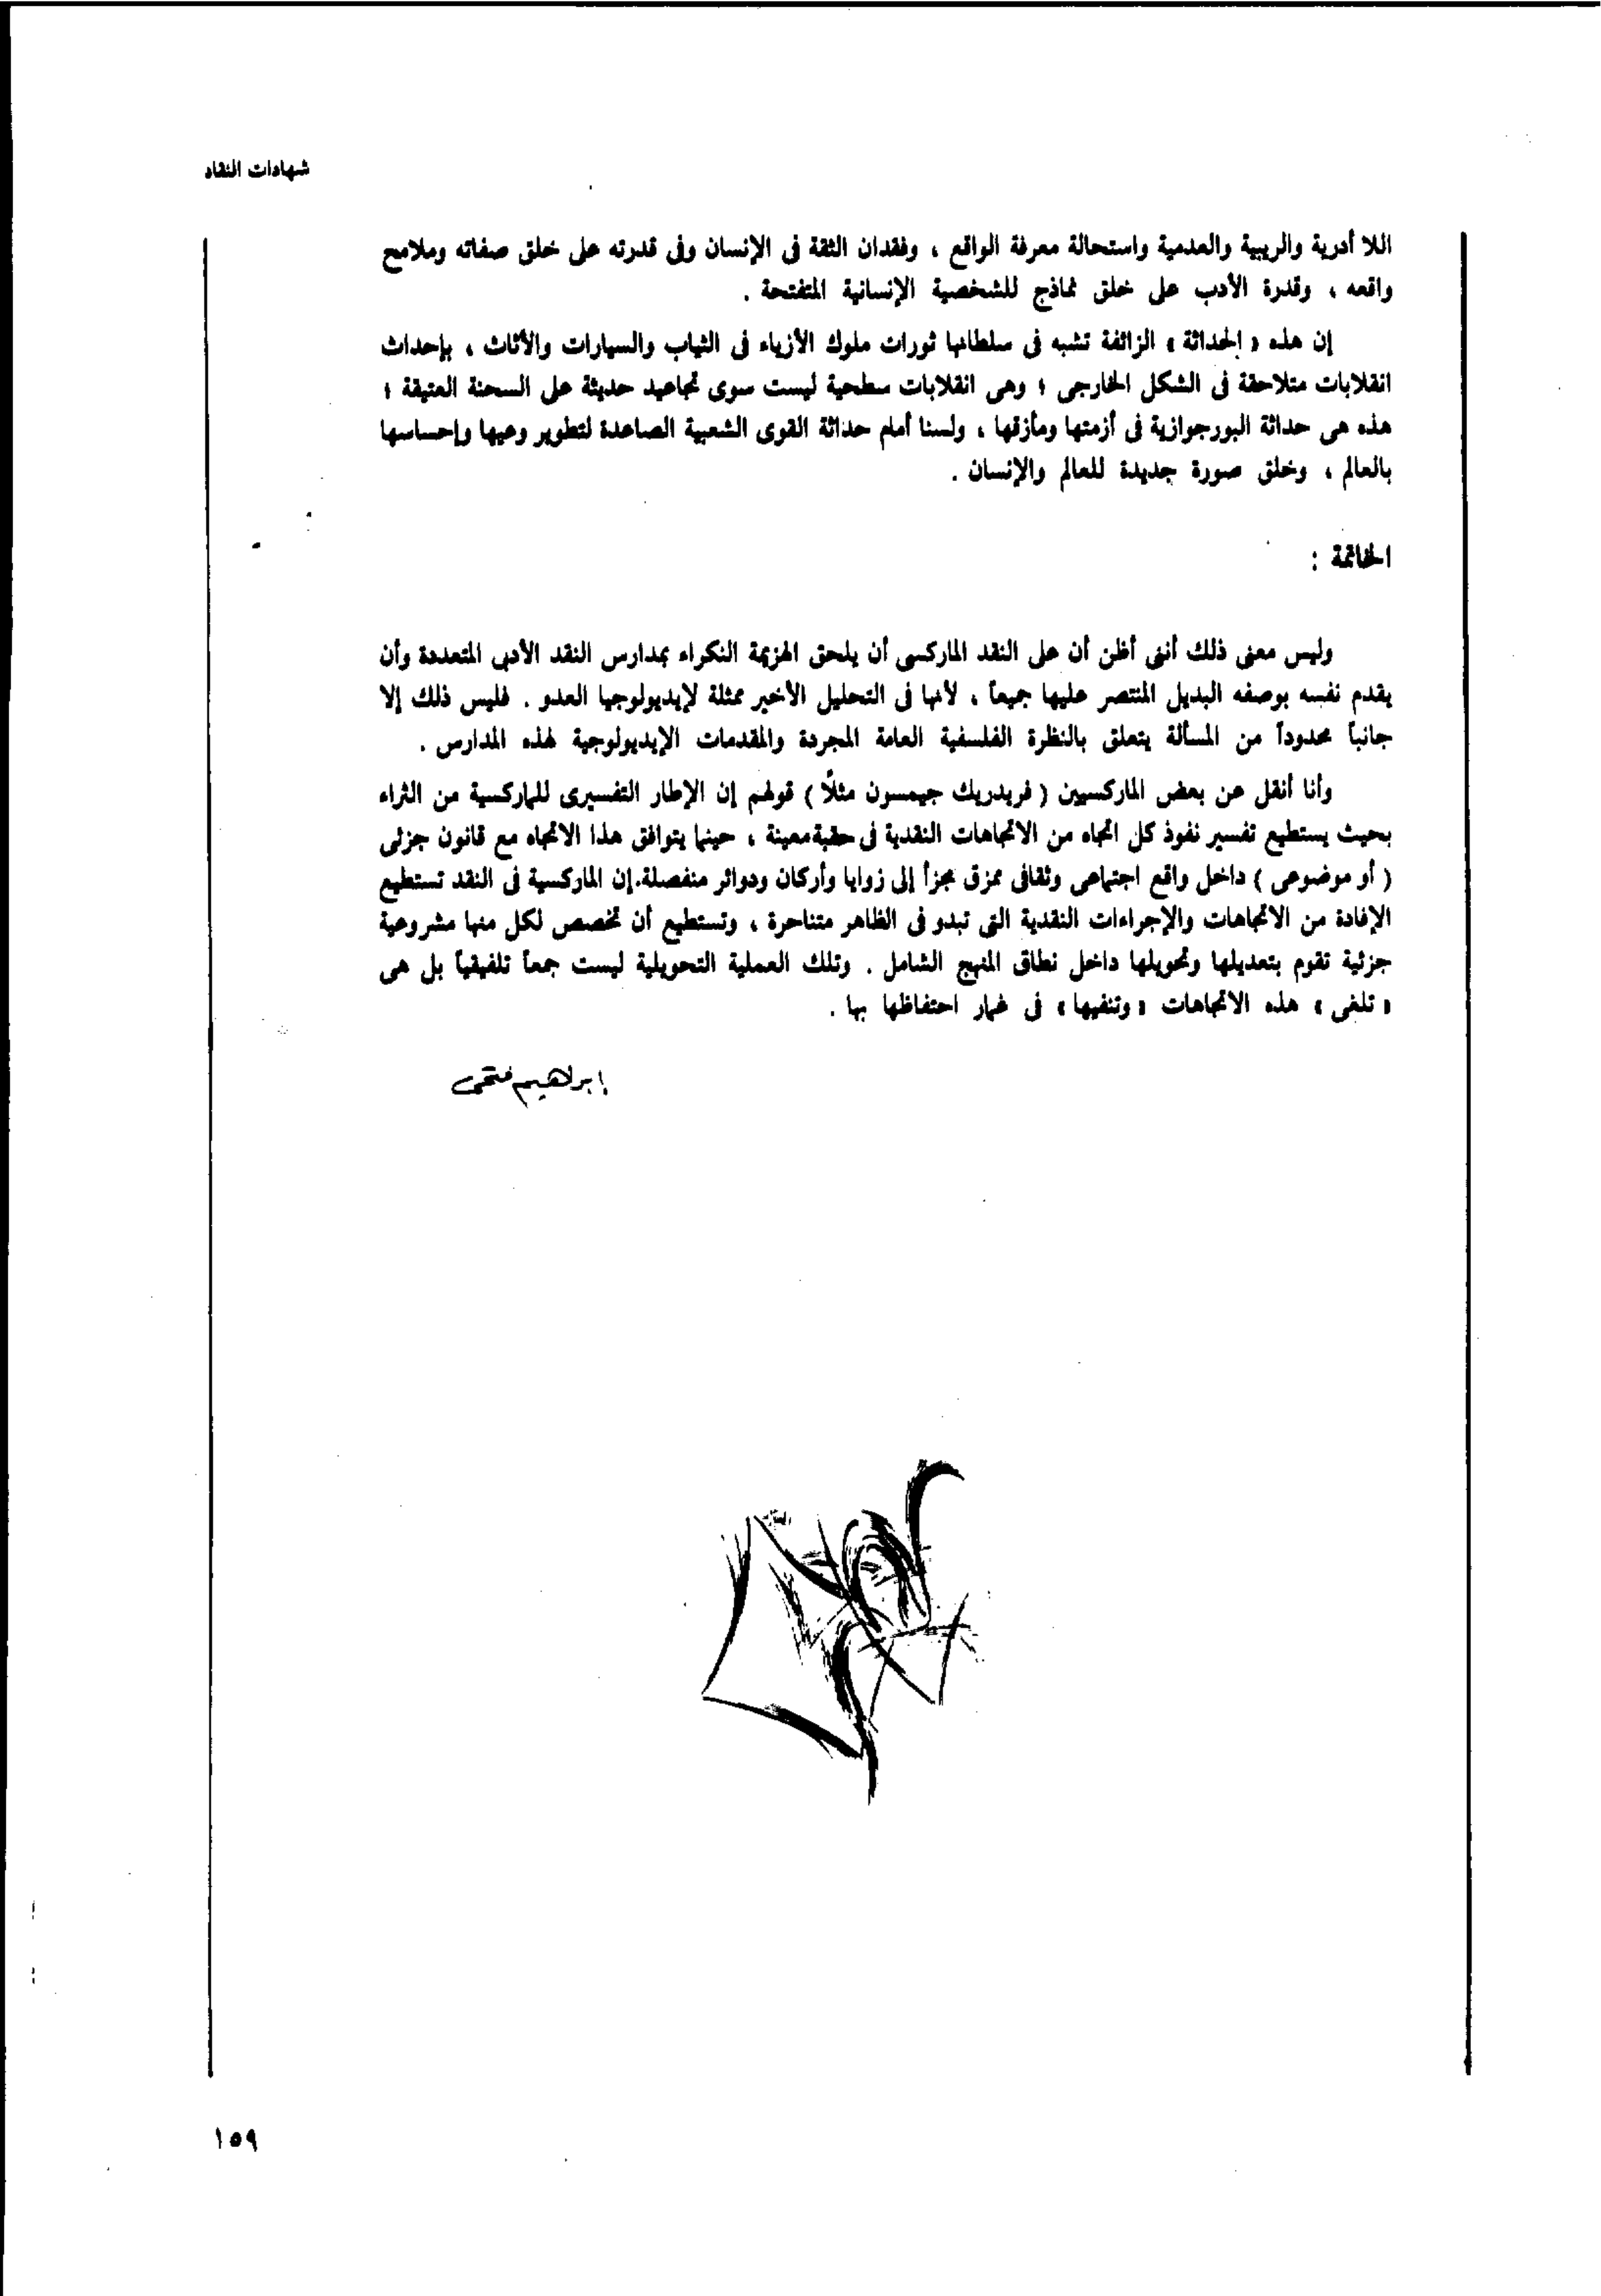 شهادات النقاد
اللا أدرية والريبية والعدمية واستحالة معرفة الواقع ، وفقدان الثقة فى الإنسان وفى قدرته على خلق صفاته وملامح
واقعه ، وقدرة الأدب على خلق نماذج للشخصية الإنسانية المتفتحة .
إن هذه « الحداثة » الزائفة تشبه فى سلطانها ثورات ملوك الأزياء فى الثياب والسيارات والأثاث ، بإحداث
انقلابات متلاحقة فى الشكل الخارجى ؛ وهى انقلابات سطحية ليست سوى تجاعيد حديثة على السحنة العتيقة ؛
هذه هى حداثة البورجوازية فى أزمتها ومأزقها ، ولسنا أمام حداثة القوى الشعبية الصاعدة لتطوير وعيها وإحساسها
بالعالم ، وخلق صورة جديدة للعالم والإنسان .
الخاتمة :
وليس معنى ذلك أننى أظن أن على النقد الماركسى أن يلحق الهزيمة النكراء بمدارس النقد الأدبى المتعددة وأن
يقدم نفسه بوصفه البديل المنتصر عليها جميعاً ، لأنها فى التحليل الأخير ممثلة لإيديولوجيا العدو . فليس ذلك إلا
جانباً محدوداً من المسألة يتعلق بالنظرة الفلسفية العامة المجردة والمقدمات الإيديولوجية لهذه المدارس .
وأنا أنقل عن بعض الماركسيين ( فريدريك جيمسون مثلاً ) قولهم إن الإطار التفسيرى للماركسية من الثراء
بحيث يستطيع تفسير نفوذ كل اتجاه من الاتجاهات النقدية فى حقبة معينة ، حينما يتوافق هذا الاتجاه مع قانون جزئى
( أو موضوعى ) داخل واقع اجتماعى وثقافى ممزق مجزأ إلى زوايا وأركان ودوائر منفصلة.إن الماركسية فى النقد تستطيع
الإفادة من الاتجاهات والإجراءات النقدية التى تبدو فى الظاهر متناحرة ، وتستطيع أن تخصص لكل منها مشروعية
جزئية تقوم بتعديلها وتحويلها داخل نطاق المنهج الشامل . وتلك العملية التحويلية ليست جمعاً تلفيقياً بل هى
« تلغى » هذه الاتجاهات « وتنفيها » فى غمار احتفاظها بها .
إبراهيم فتحى
١٥٩